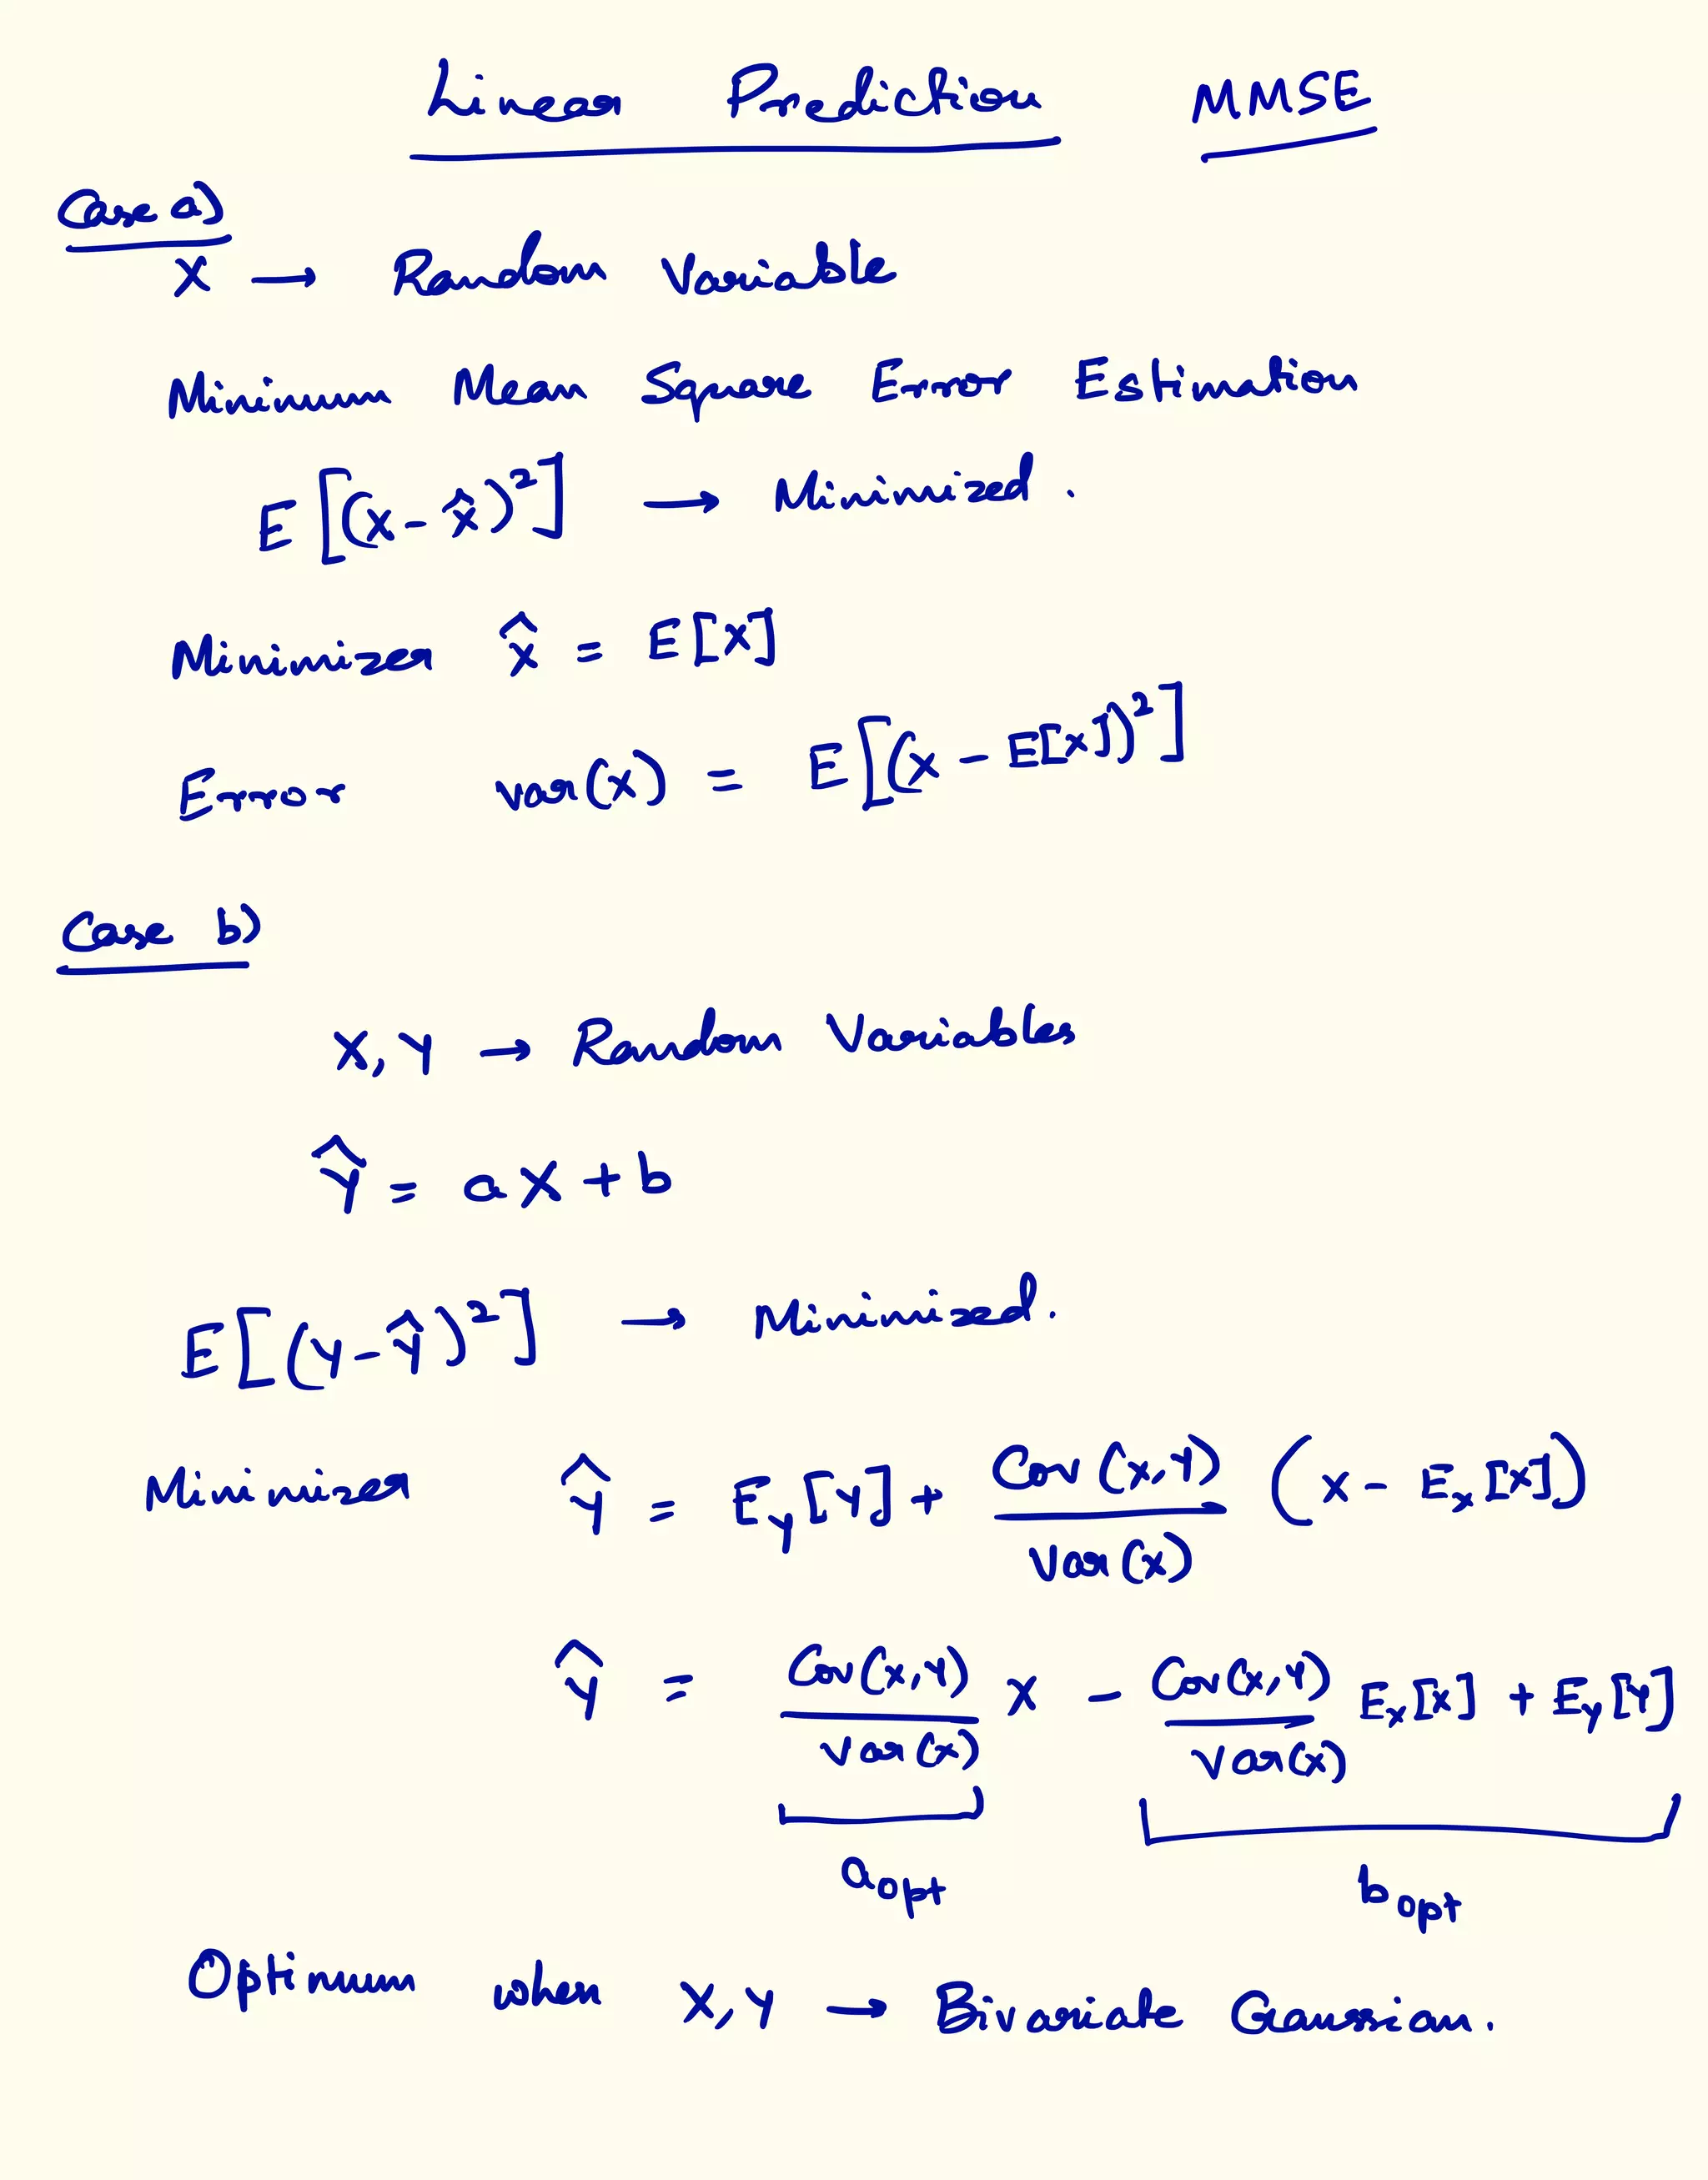 Linear Prediction MMSE
Case a)
X → Random Variable
Minimum Mean Square Error Estimation
E[(X - X̂)²] → Minimized.
Minimizer X̂ = E[X]
Error var(X) = E[(X - E[X])²]
Case b)
X, Y → Random Variables
Ŷ = aX + b
E[(Y - Ŷ)²] → Minimized.
Minimizer Ŷ = E_Y[Y] + Cov(X,Y) / Var(X) (X - E_X[X])
Ŷ = Cov(X,Y) / Var(X) X - Cov(X,Y) / Var(X) E_X[X] + E_Y[Y]
a_opt b_opt
Optimum when X, Y → Bivariate Gaussian.